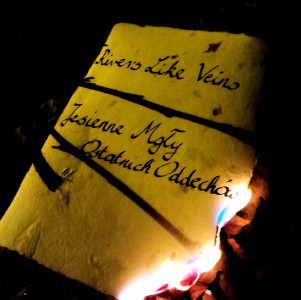 Rivers Like Veins
Jesienne Mgły
Ostatnich Oddechów